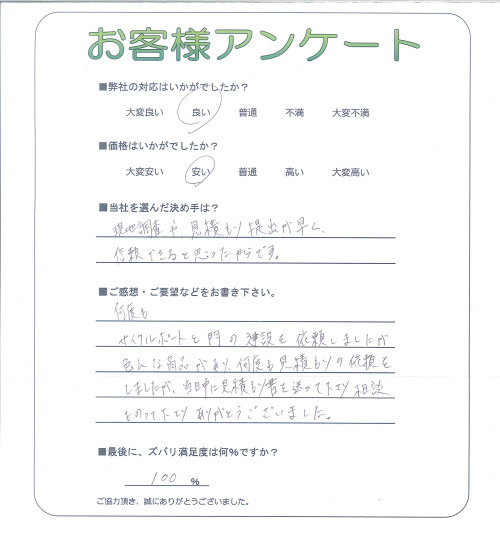 お客様アンケート
■弊社の対応はいかがでしたか？
大変良い 良い 普通 不満 大変不満
■価格はいかがでしたか？
大変安い 安い 普通 高い 大変高い
■当社を選んだ決め手は？
現地調査や、見積もり提出が早く、
信頼できると思ったからです。
■ご感想・ご要望などをお書き下さい。
何度も
サイクルポートと門の建設を依頼しましたが
色んな商品があり、何度も見積もりの依頼を
しましたが、当日中に見積もり書を送って下さり 相談
ものって下さり ありがとうございました。
■最後に、ズバリ満足度は何％ですか？
100 ％
ご協力頂き、誠にありがとうございました。